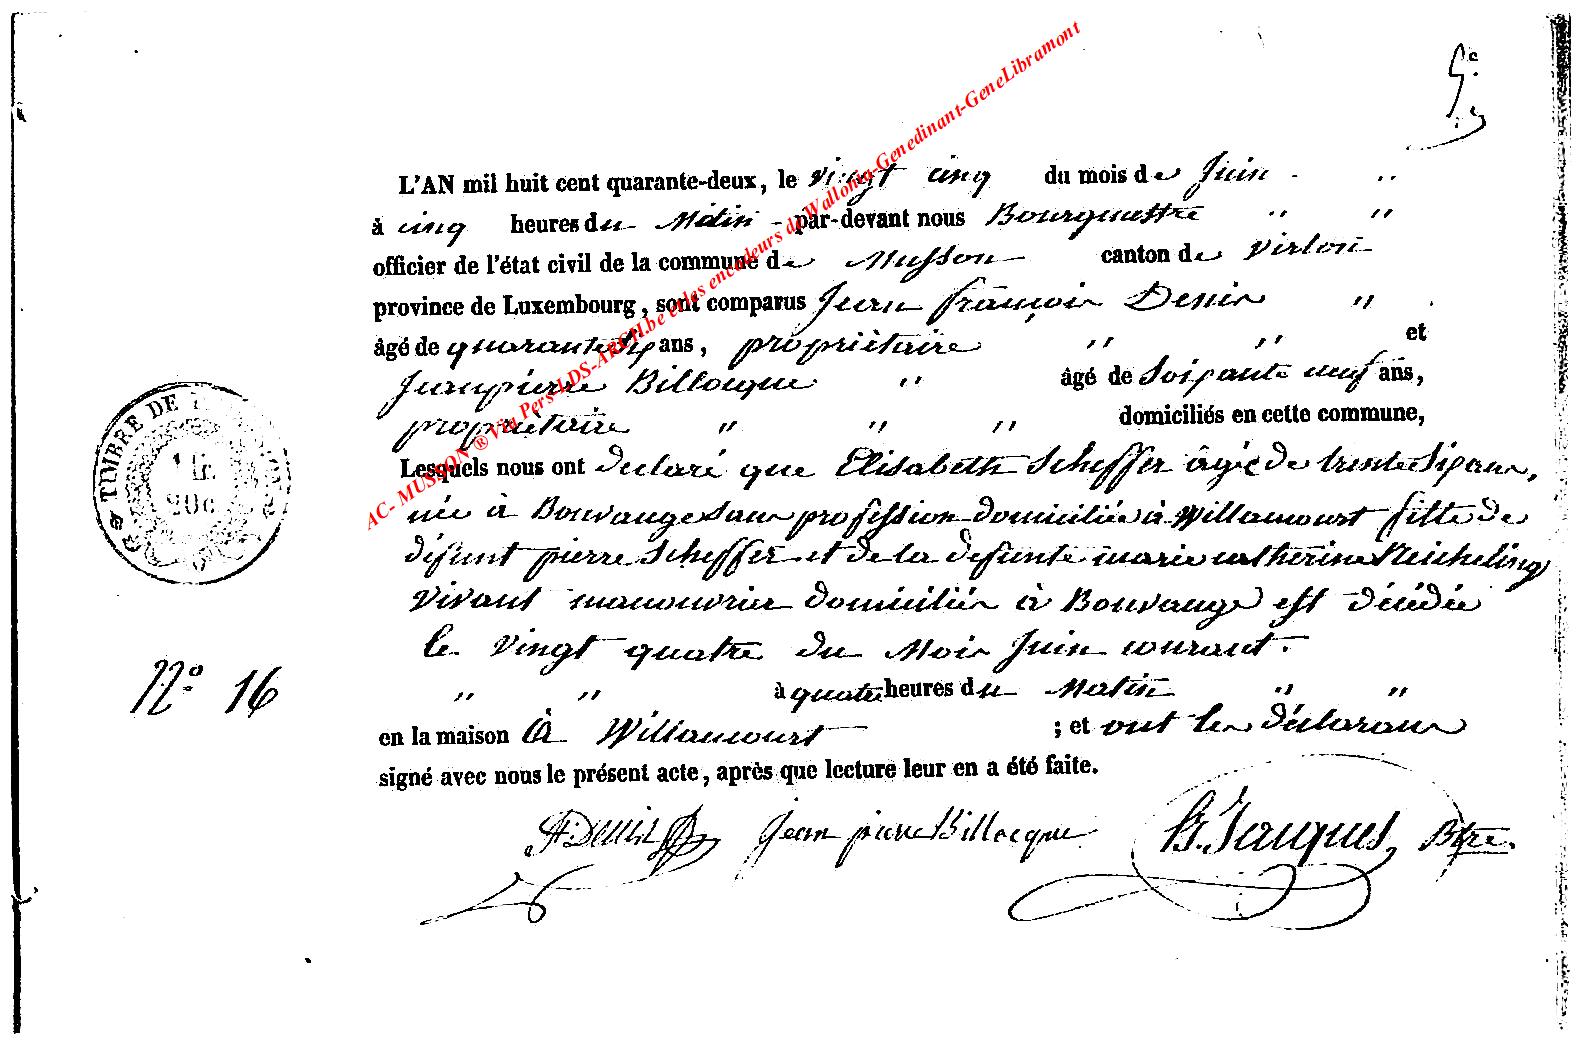 5e
L'AN mil huit cent quarante-deux, le vingt cinq du mois de Juin
à cinq heures du Matin par-devant nous Bourguettre " "
officier de l'état civil de la commune de Musson canton de virton
province de Luxembourg, sont comparus Jean françois Denis "
âgé de quarante six ans, propriétaire " " et
Jeanpierre Billocque " âgé de Soixante neuf ans,
propriétaire " " " domiciliés en cette commune,
Lesquels nous ont declaré que Elisabeth Scheffer âgée de trente Six ans,
née à Bouvange Sans profession domiciliée à Willancourt fille de
défunt pierre Scheffer et de la défunte marie catherine Reicheling
vivant manouvrier domiciliés à Bouvange est décédée
le vingt quatre du Mois Juin courant.
" " à quatre heures du Matin " "
en la maison à Willancourt ; et ont les déclarans
signé avec nous le présent acte, après que lecture leur en a été faite.
Denis Jean pierre Billocque B. Jacques, Bgtre.
TIMBRE DE
1 fr.
20c
No. 16
AC- MUSSON ® Via Pers-LDS-ARCH.be et les encodeurs de Wallonia-Genedinant-GeneLibramont